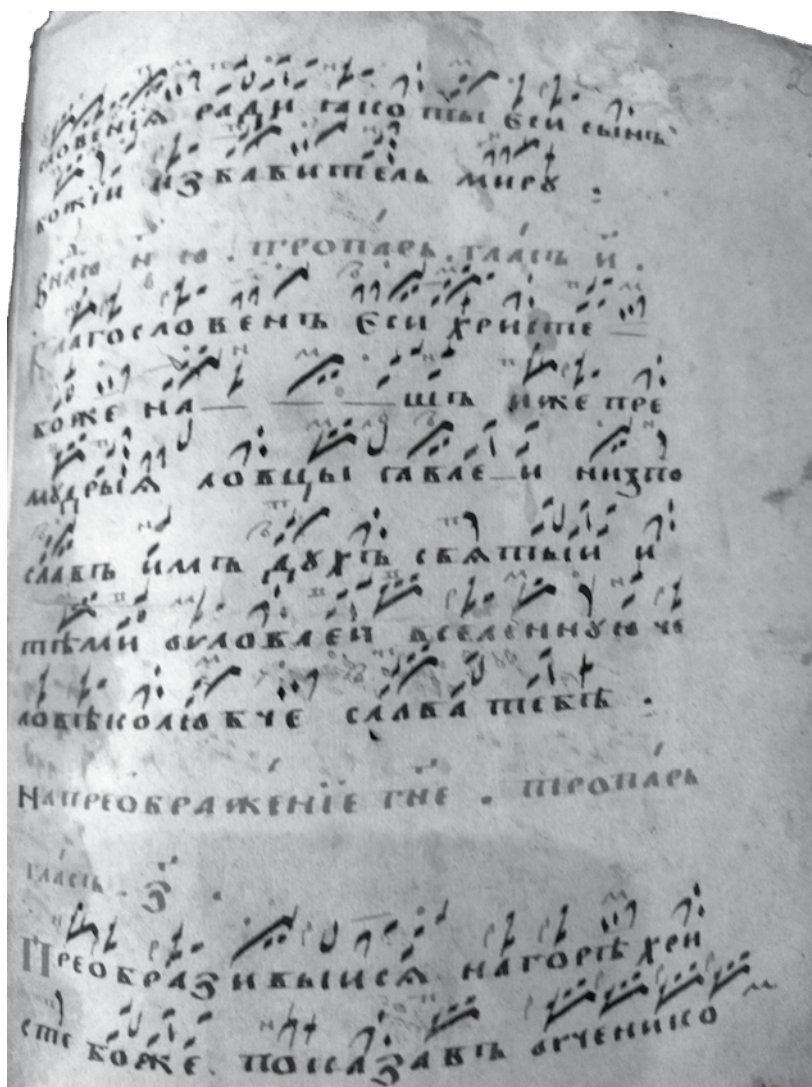 словенїѧ ради ꙗко ты єси сынъ
божїи избавитель мирꙋ .
тропарь . гласъ и҃ .
Благословенъ єси христе
боже нашъ иже пре
мꙋдрыѧ ловцы ꙗвлеи низпо
славъ имъ дꙋхъ свѧтыи и
тѣми ѹловлеи вселеннꙋю че
ловѣколюбче слава тебѣ .
Напреображенїе гн҃е . тропарь
гласъ . з҃ .
Преобразивыисѧ нагорѣ хри
сте боже . показавъ ѹченико